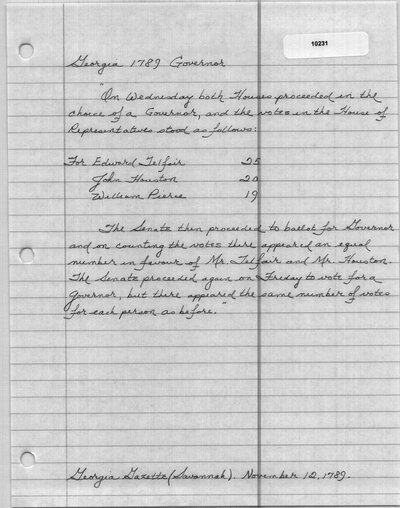 10231
Georgia 1789 Governor
"On Wednesday both Houses proceeded in the
choice of a Governor, and the votes in the House of
Representatives stood as follows:
For Edward Telfair 25
John Houston 20
William Pierce 19
The Senate then proceeded to ballot for Governor
and on counting the votes there appeared an equal
number in favour of Mr. Telfair and Mr. Houston.
The Senate proceeded again on Friday to vote for a
governor, but there appeared the same number of votes
for each person as before."
Georgia Gazette (Savannah). November 12, 1789.